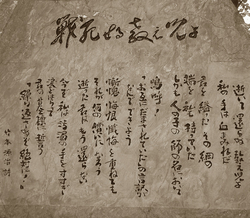 戰死せる教え児よ
逝いて還らぬ教え児よ
私の手は血まみれだ
君を縊ったその綱の
端を私も持っていた
しかも人の子の師の名において
嗚呼!
「お互いにだまされていた」の言訳が
なんでできよう
慚愧 悔恨 懺悔を重ねても
それが何の償いになろう
逝った君はもう還らない
今ぞ私は汚濁の手をすすぎ
涙をはらって
君の墓標に誓う
「繰り返すまじ絶対に!」
竹本源治